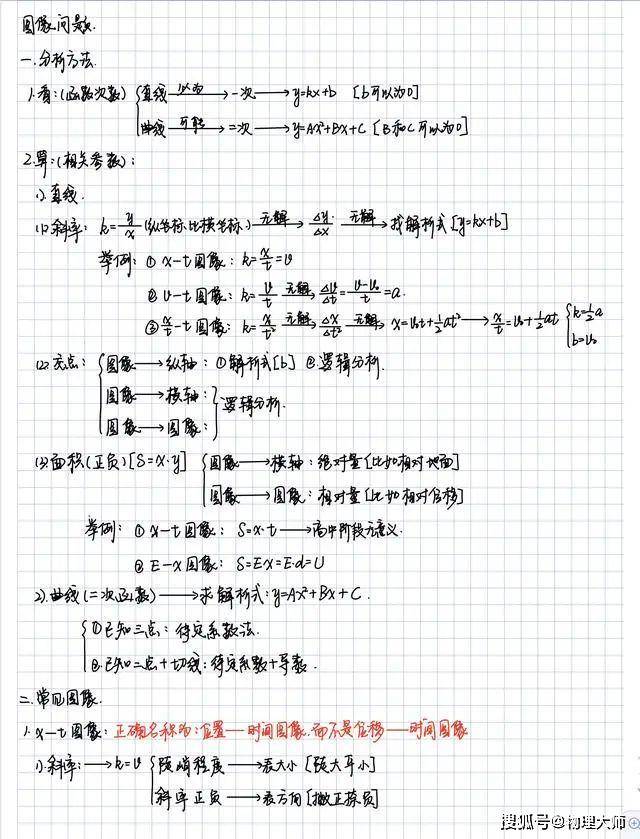 图像问题.
一.分析方法.
1.看:(函数次数) {直线 以为→ 一次 → y=kx+b [b可以为0]
曲线 可能→ 二次 → y=Ax²+Bx+C [B和C可以为0]
2.算:(相关参数):
1).直线.
(1).斜率: k=y/x (纵坐标比横坐标) 无解→ Δy/Δx 无解→ 找解析式[y=kx+b]
举例: ① x-t图像: k=x/t=v
② v-t图像: k=v/t 无解→ Δv/Δt=(v-v₀)/t=a.
③ x/t-t图像: k=x/t² 无解→ Δx/Δt² 无解→ x=v₀t+½at² → x/t=v₀+½at {k=½a
b=v₀
(2).交点: {图像→纵轴: ①解析式[b] ②逻辑分析.
图像→横轴:
图像→图像: }逻辑分析.
(3)面积(正负)[S=x·y] {图像→横轴: 绝对量[比如相对地面]
图像→图像: 相对量[比如相对位移]
举例: ① x-t图像: S=x·t → 高中阶段无意义.
② E-x图像: S=Ex=E·d=U
2).曲线(二次函数) → 求解析式: y=Ax²+Bx+C.
{①已知三点: 待定系数法.
②.已知二点+切线: 待定系数+导数.
二.常见图像.
1. x-t图像: 正确名称为: 位置—时间图像.而不是位移—时间图像
1).斜率: → k=v {陡峭程度 → 表大小 [陡大平小]
斜率正负 → 表方向 [撇正捺负]
搜狐号@物理大师